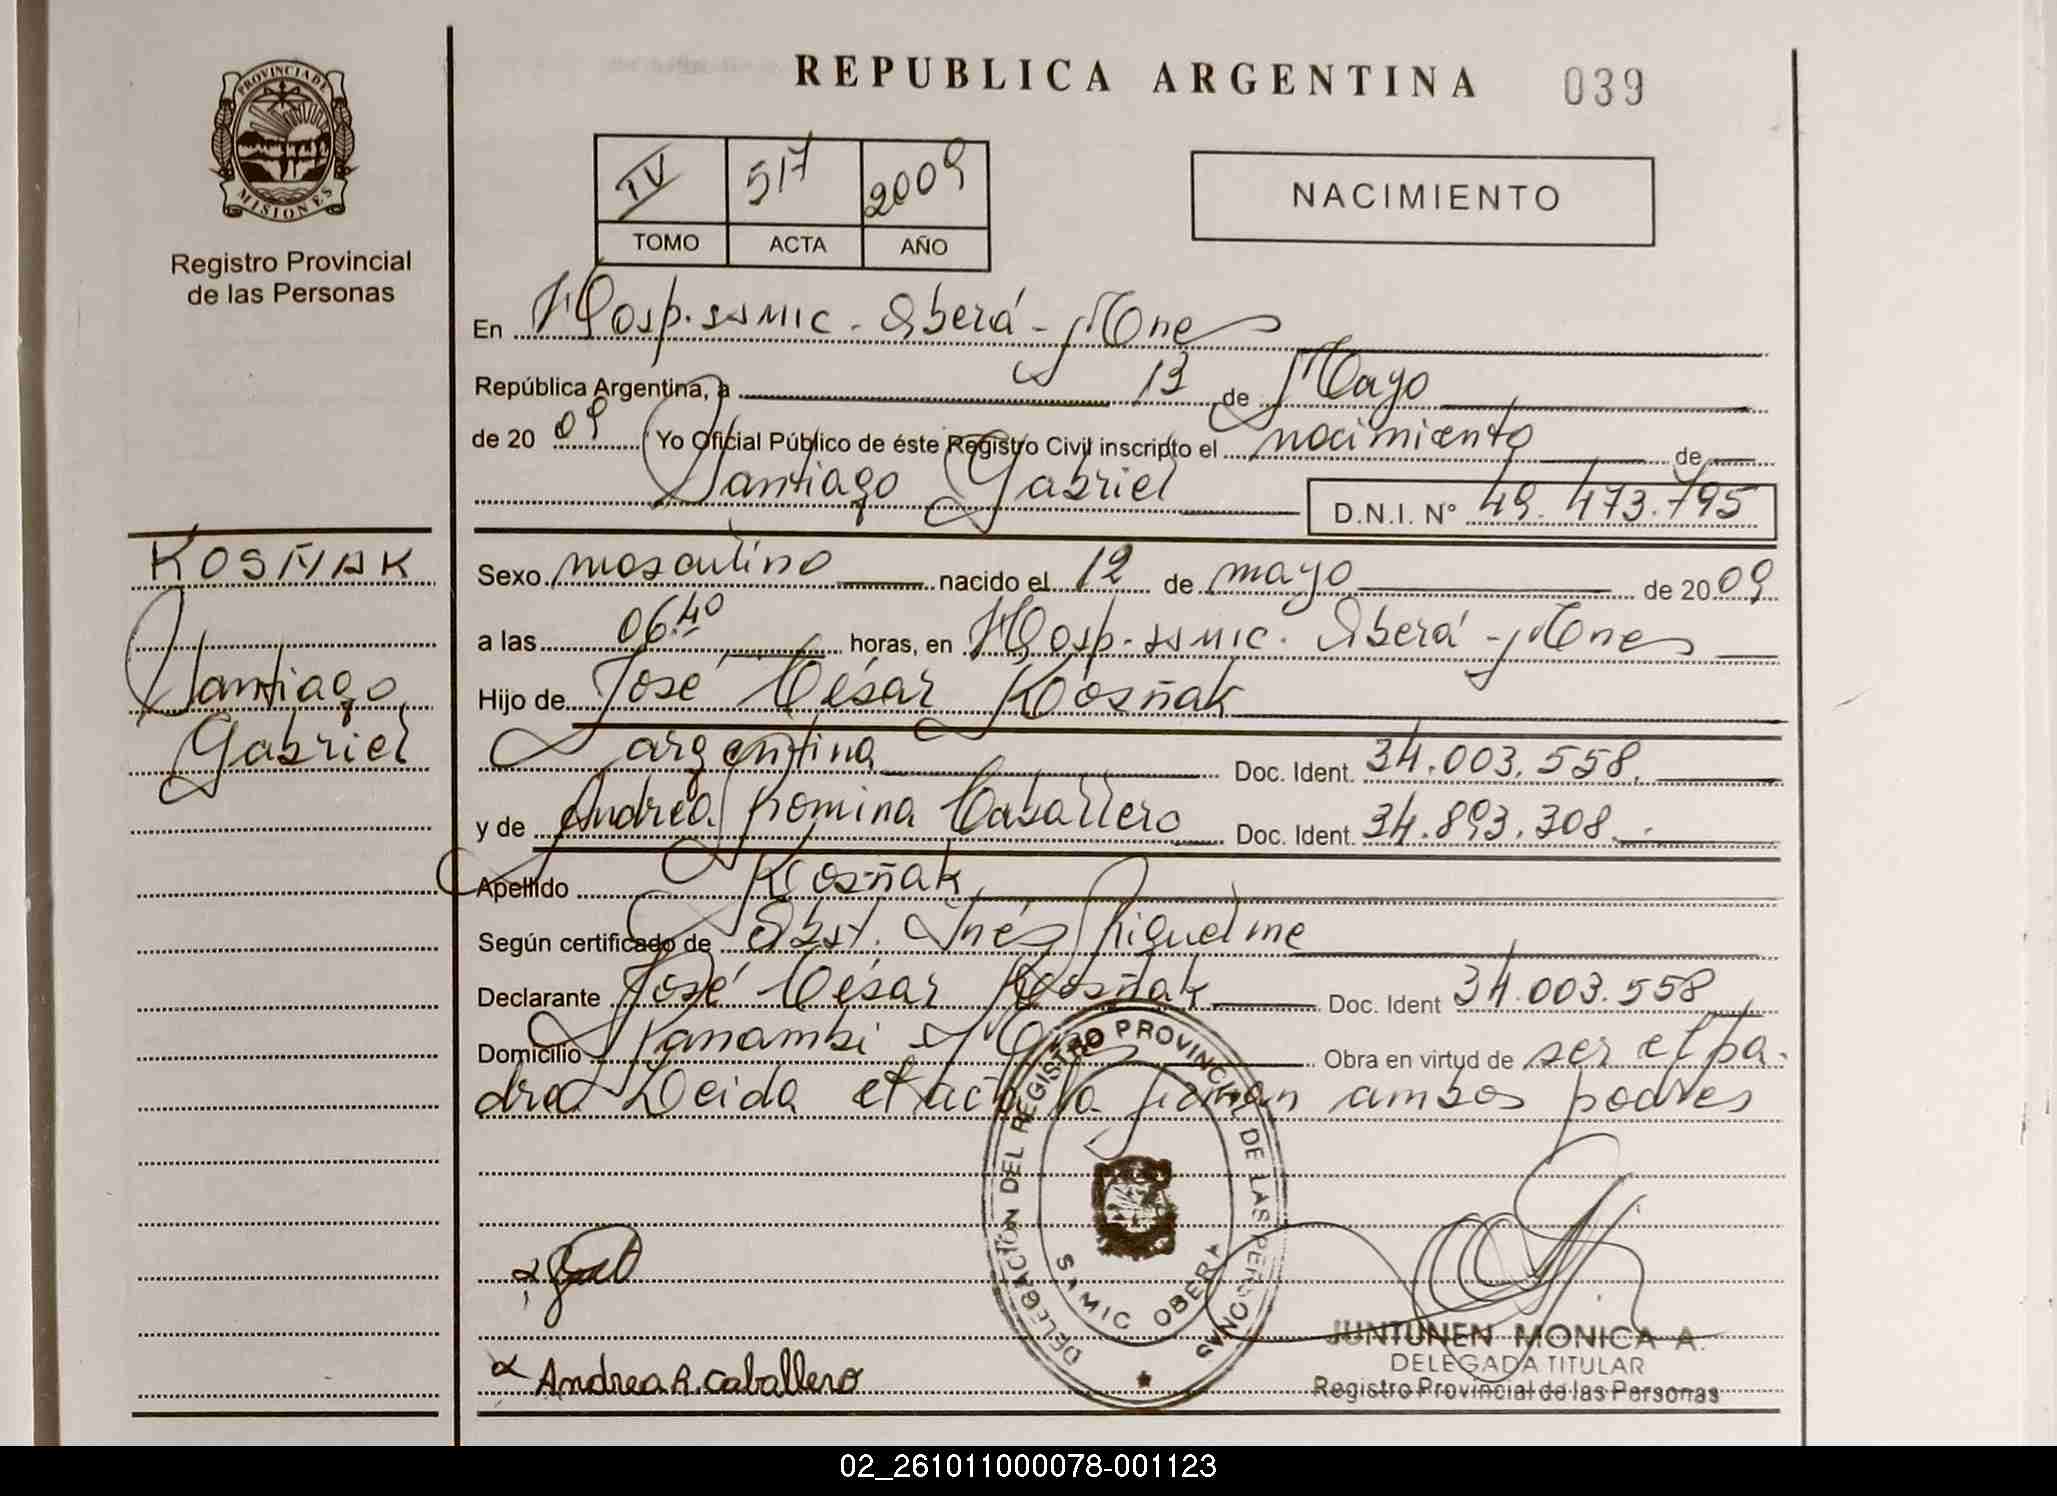 REPUBLICA ARGENTINA 039
PROVINCIA DE MISIONES
Registro Provincial
de las Personas
IV 517 2009
TOMO ACTA AÑO
NACIMIENTO
En Hosp. SAMIC. Oberá - Mnes
República Argentina, a 13 de Mayo
de 20 09 Yo Oficial Público de éste Registro Civil inscripto el nacimiento de
Santiago Gabriel D.N.I. N° 49.473.795
KOSÑAK
Santiago
Gabriel
Sexo masculino nacido el 12 de mayo de 20 09
a las 06.40 horas, en Hosp. SAMIC. Oberá - Mnes
Hijo de José César Kosñak
argentina Doc. Ident. 34.003.558.
y de Andrea Romina Caballero Doc. Ident. 34.893.308.
Apellido Kosñak
Según certificado de Obst. Inés Riquelme
Declarante José César Kosñak Doc. Ident 34.003.558
Domicilio Panambi Mnes Obra en virtud de ser el pa-
dre Leida el acta la firman ambos padres
DELEGACIÓN DEL REGISTRO PROVINCIAL DE LAS PERSONAS
SAMIC OBERA
Andrea R. Caballero
JUNTUNEN MONICA A.
DELEGADA TITULAR
Registro Provincial de las Personas
02_261011000078-001123